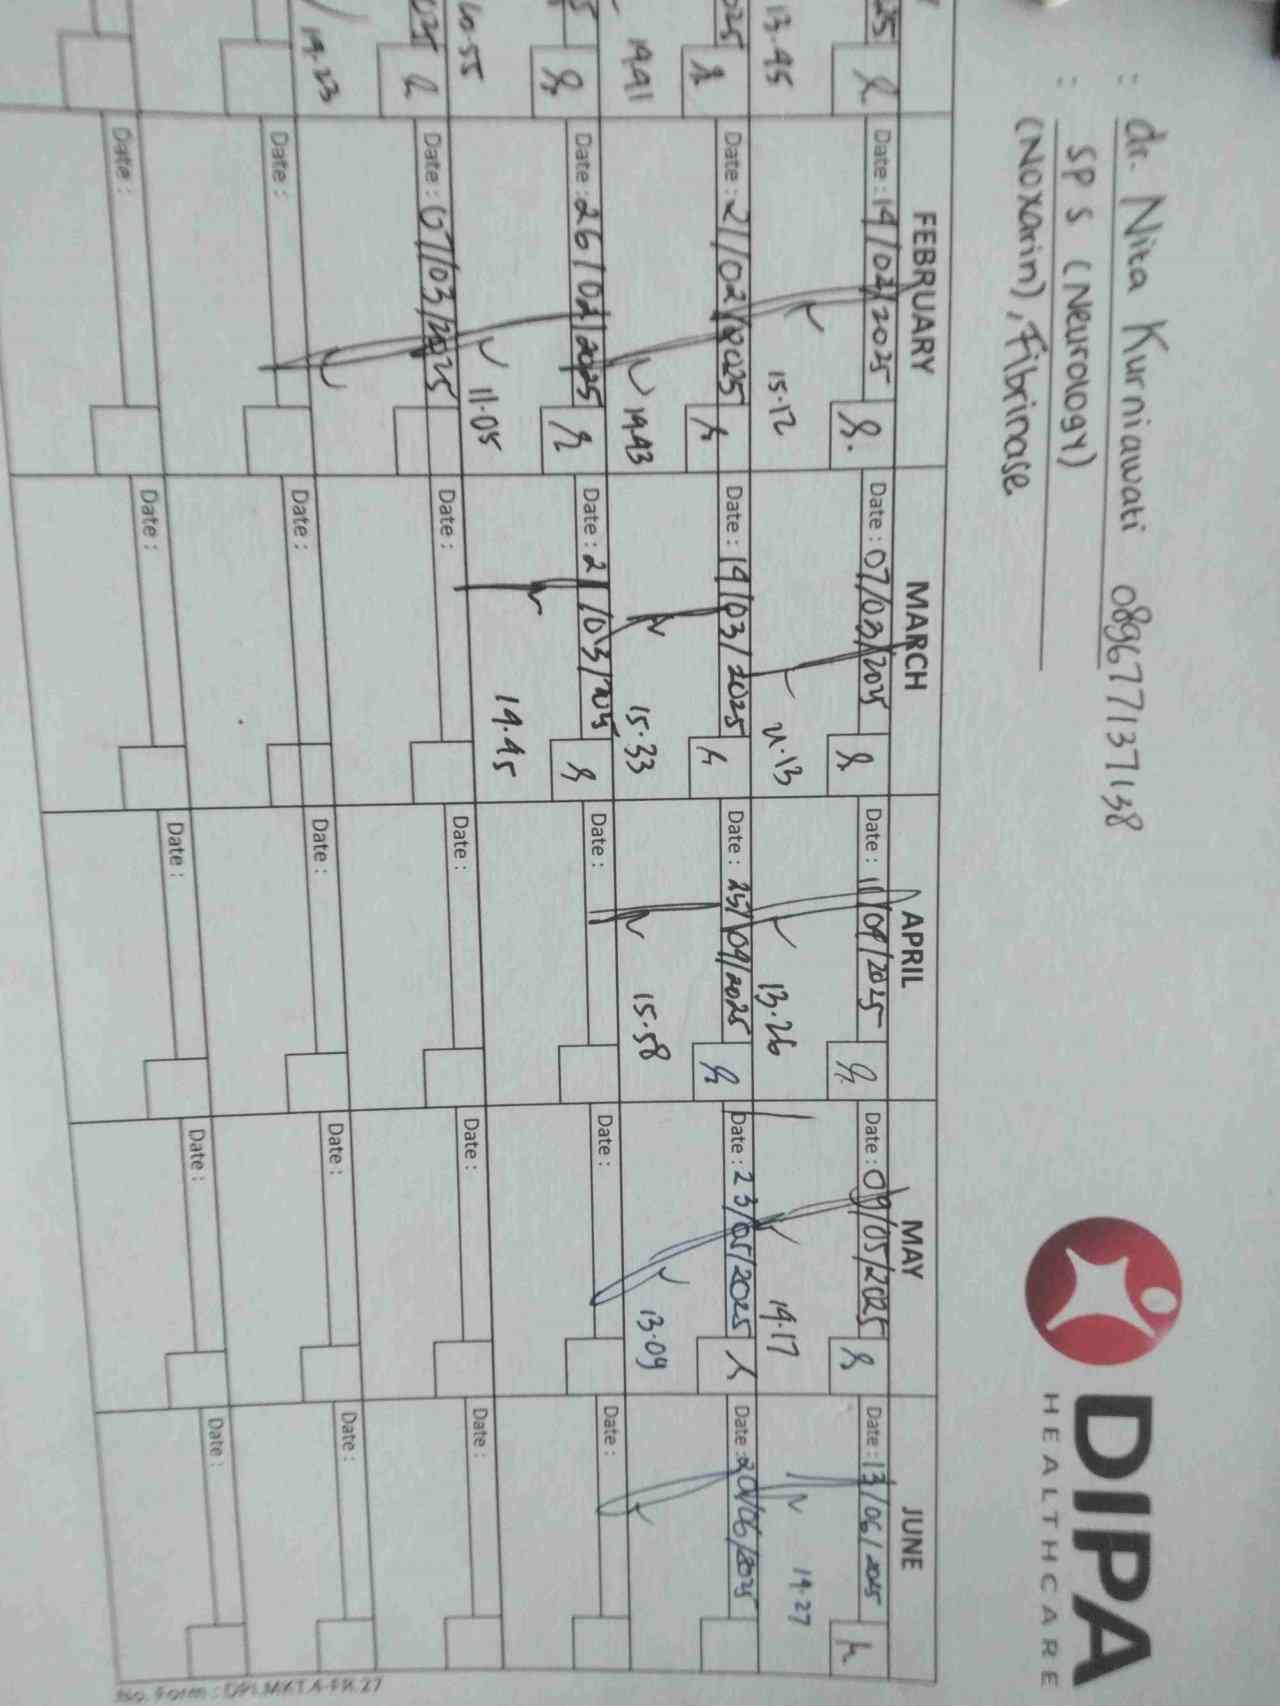 : dr. Nita Kurniawati 089677137138
: SP S (Neurology)
(Noxarin), Fibrinase
DIPA
HEALTHCARE
FEBRUARY MARCH APRIL MAY JUNE
25 Date : 14/02/2025 Date : 07/03/2025 Date : 11/04/2025 Date : 09/05/2025 Date : 13/06/2025
13.45 15.12 13.26 14.17 14.27
025 Date : 21/02/2025 Date : 14/03/2025 Date : 25/04/2025 Date : 23/05/2025 Date : 20/06/2025
14.41 14.43 15.33 15.58 13.09
5 Date : 26/02/2025 Date : 21/03/2025 Date : Date : Date :
11.05 14.45
025 Date : 07/03/2025 Date : Date : Date : Date :
14.23
Date : Date : Date : Date : Date :
Date : Date : Date : Date : Date :
No. Form : DPI.MKT.4-FR.27